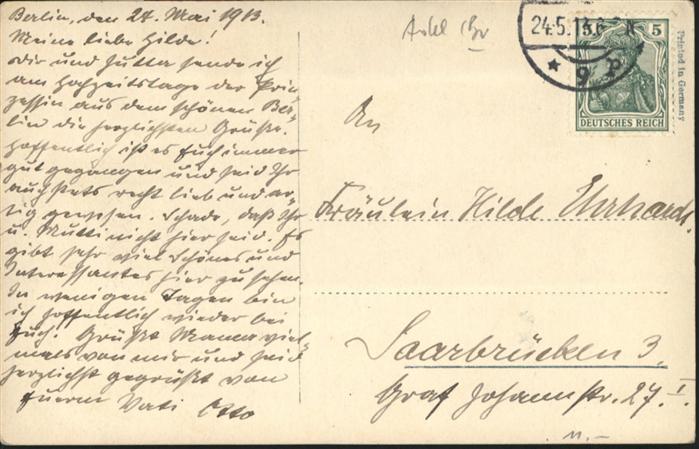 Berlin, den 24. Mai 1913.
Meine liebe Hilde!
Dir und Jutta sende ich
am Hochzeitstage der Prin-
zessin aus dem schönen Ber-
lin die herzlichsten Grüße.
Hoffentlich ist es Euch immer
gut gegangen und seid Ihr
auch stets recht lieb und ar-
tig gewesen. Schade, daß Ihr
u. Mutti nicht hier seid. Es
gibt sehr viel Schönes und
Interessantes hier zu sehen.
In wenigen Tagen bin
ich hoffentlich wieder bei
Euch. Grüßt Mama viel-
mals von mir und seid
herzlichst gegrüßt von
Euerm Vati Otto
24.5.13.6
* 9 P
5
DEUTSCHES REICH
Printed in Germany
An
Fräulein Hilde Ehrhardt.
Saarbrücken 3.
Graf Johannstr. 27. I.